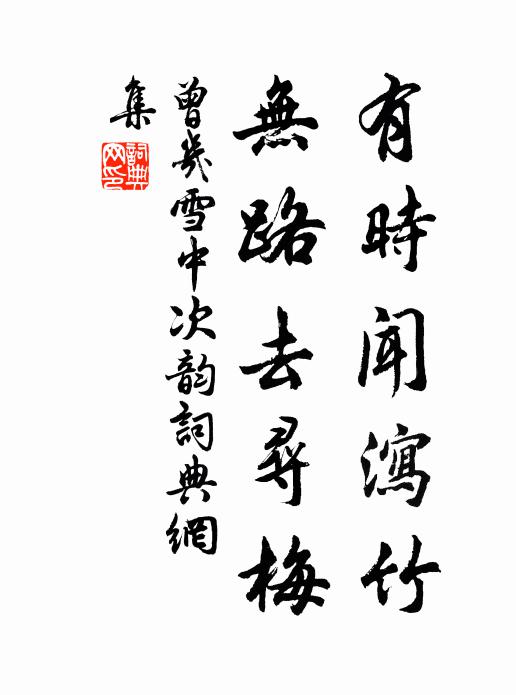 有時聞瀉竹
無路去尋梅
曾幾雪中次韵詞典網
集
詞典
网印